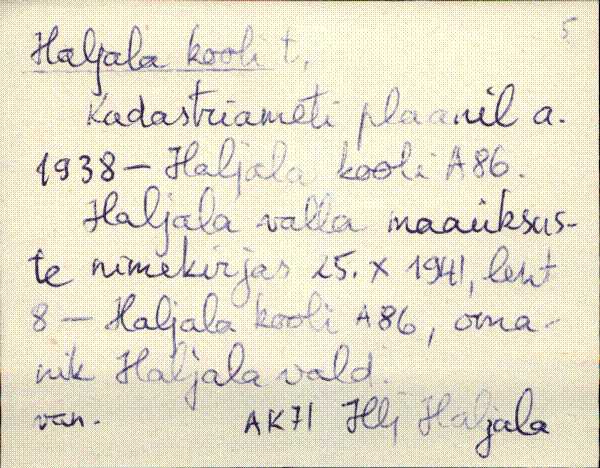 5
Haljala kooli t.,
Kadastriameti plaanil a.
1938 — Haljala kooli A86.
Haljala valla maaüksus-
te nimekirjas 25. X 1941, leht
8 — Haljala kooli A86, oma-
nik Haljala vald.
van. AK71 Hlj Haljala